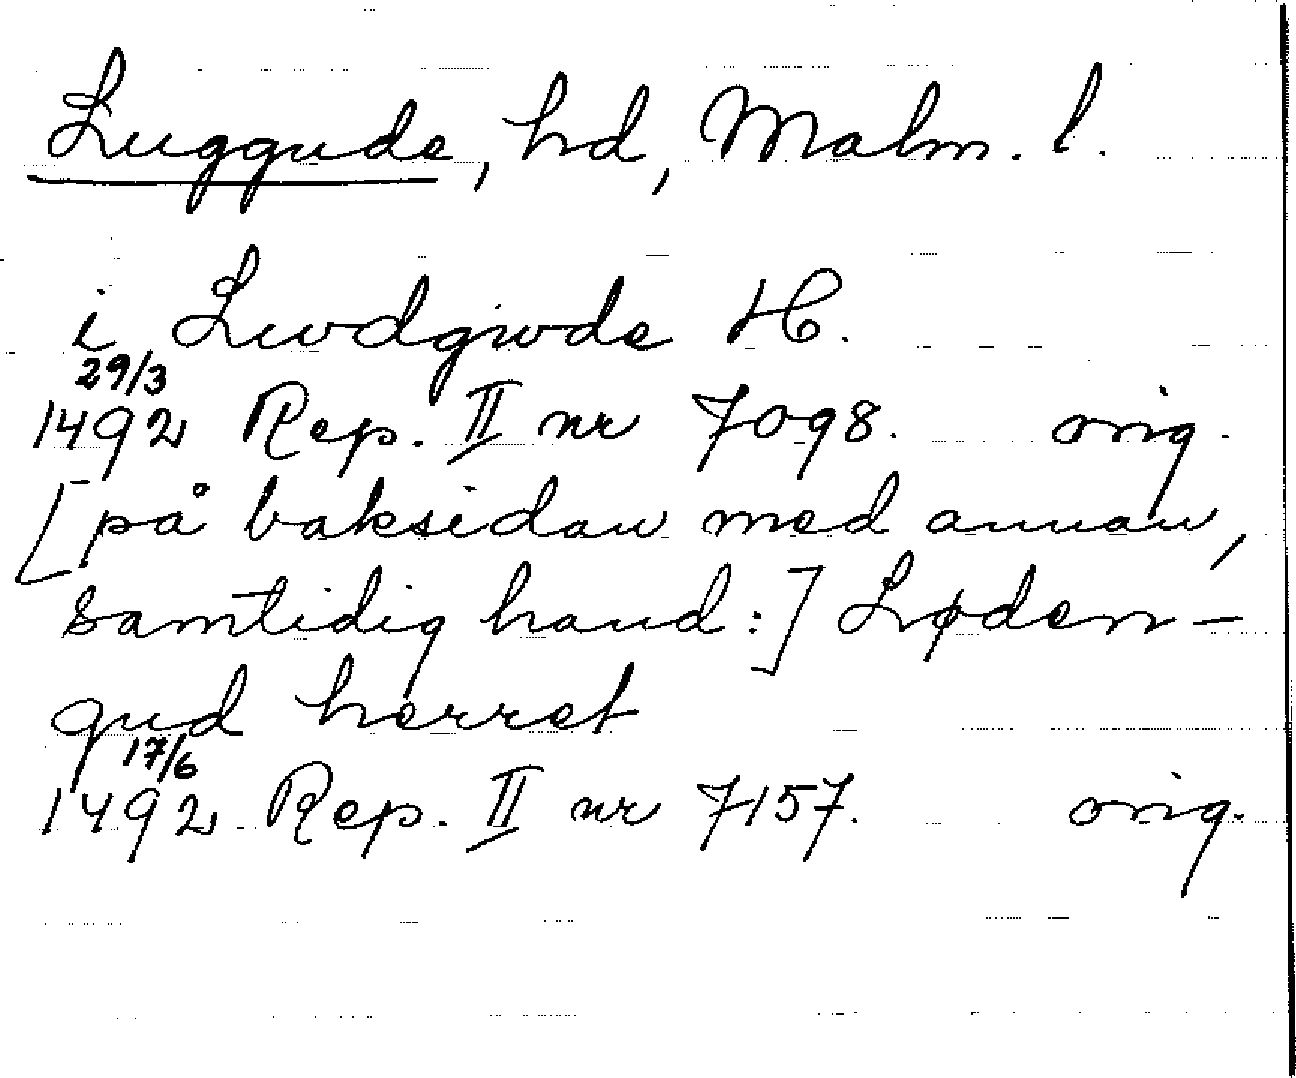 Luggude, hd, Malm. l.
i Lwdgwde H.
29/3
1492 Rep. II nr 7098. orig.
[på baksidan med annan,
samtidig hand:] Løden-
gud herret
17/6
1492 Rep. II nr 7157. orig.